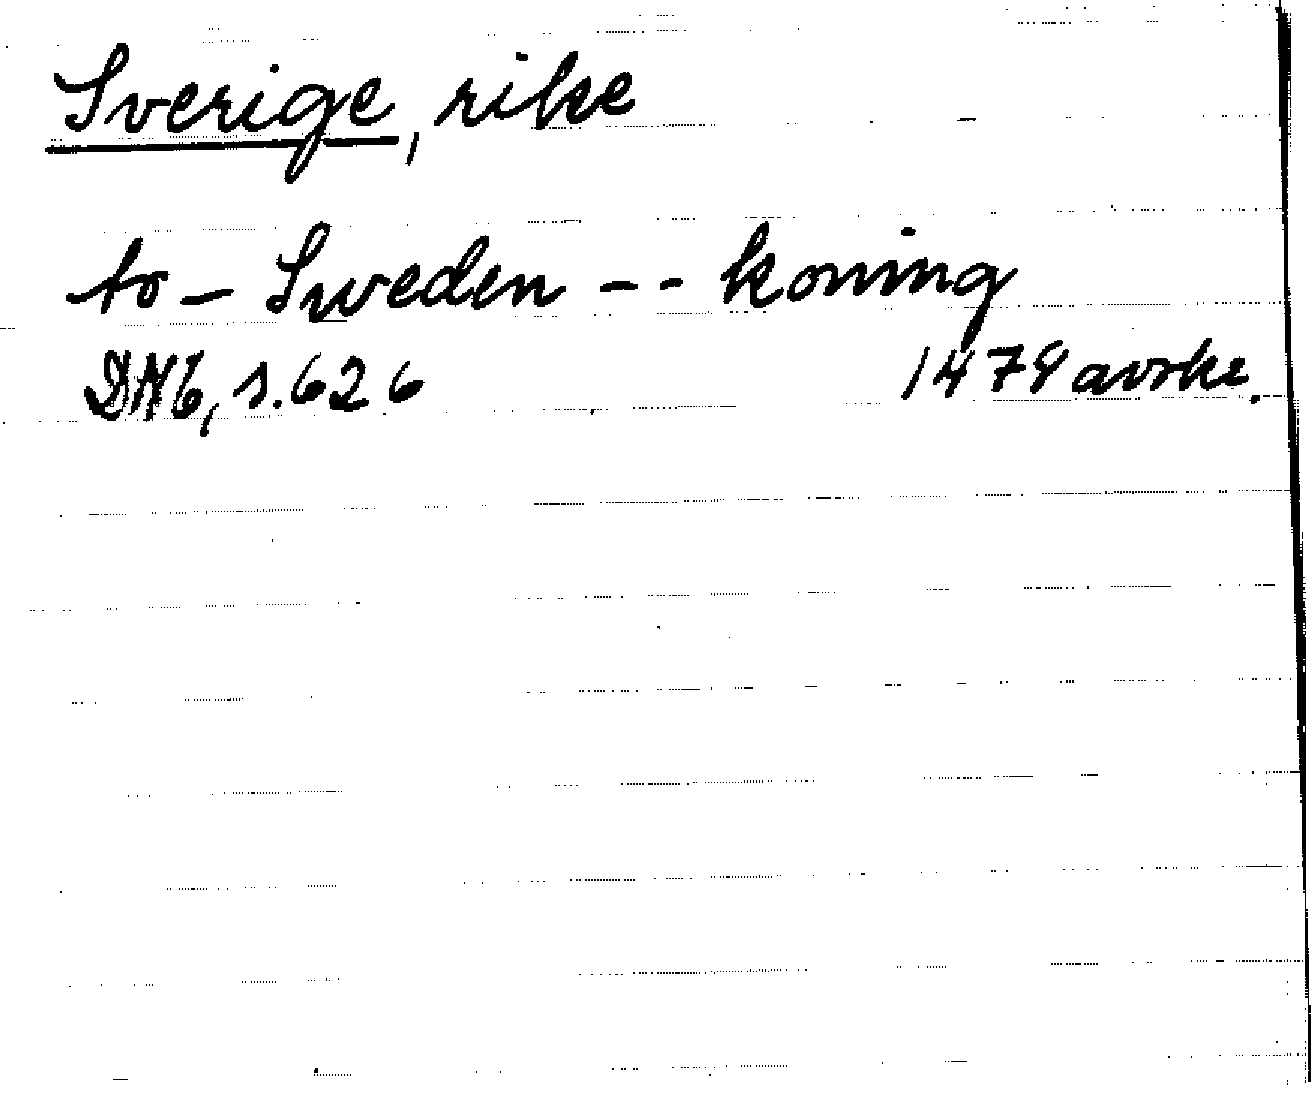 Sverige, rike
to – Sweden -- koning
DN6, s. 626 1478 avskr.